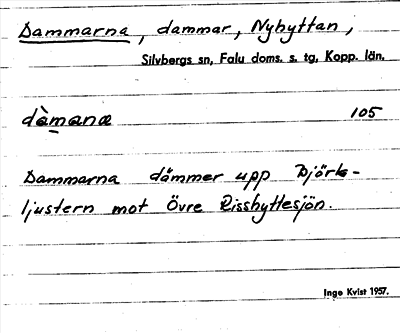 Dammarna, dammar, Nyhyttan,
Silvbergs sn, Falu doms. s. tg, Kopp. län.
dàmanα 105
Dammarna dämmer upp Björk-
ljustern mot Övre Risshyttesjön.
Inge Kvist 1957.